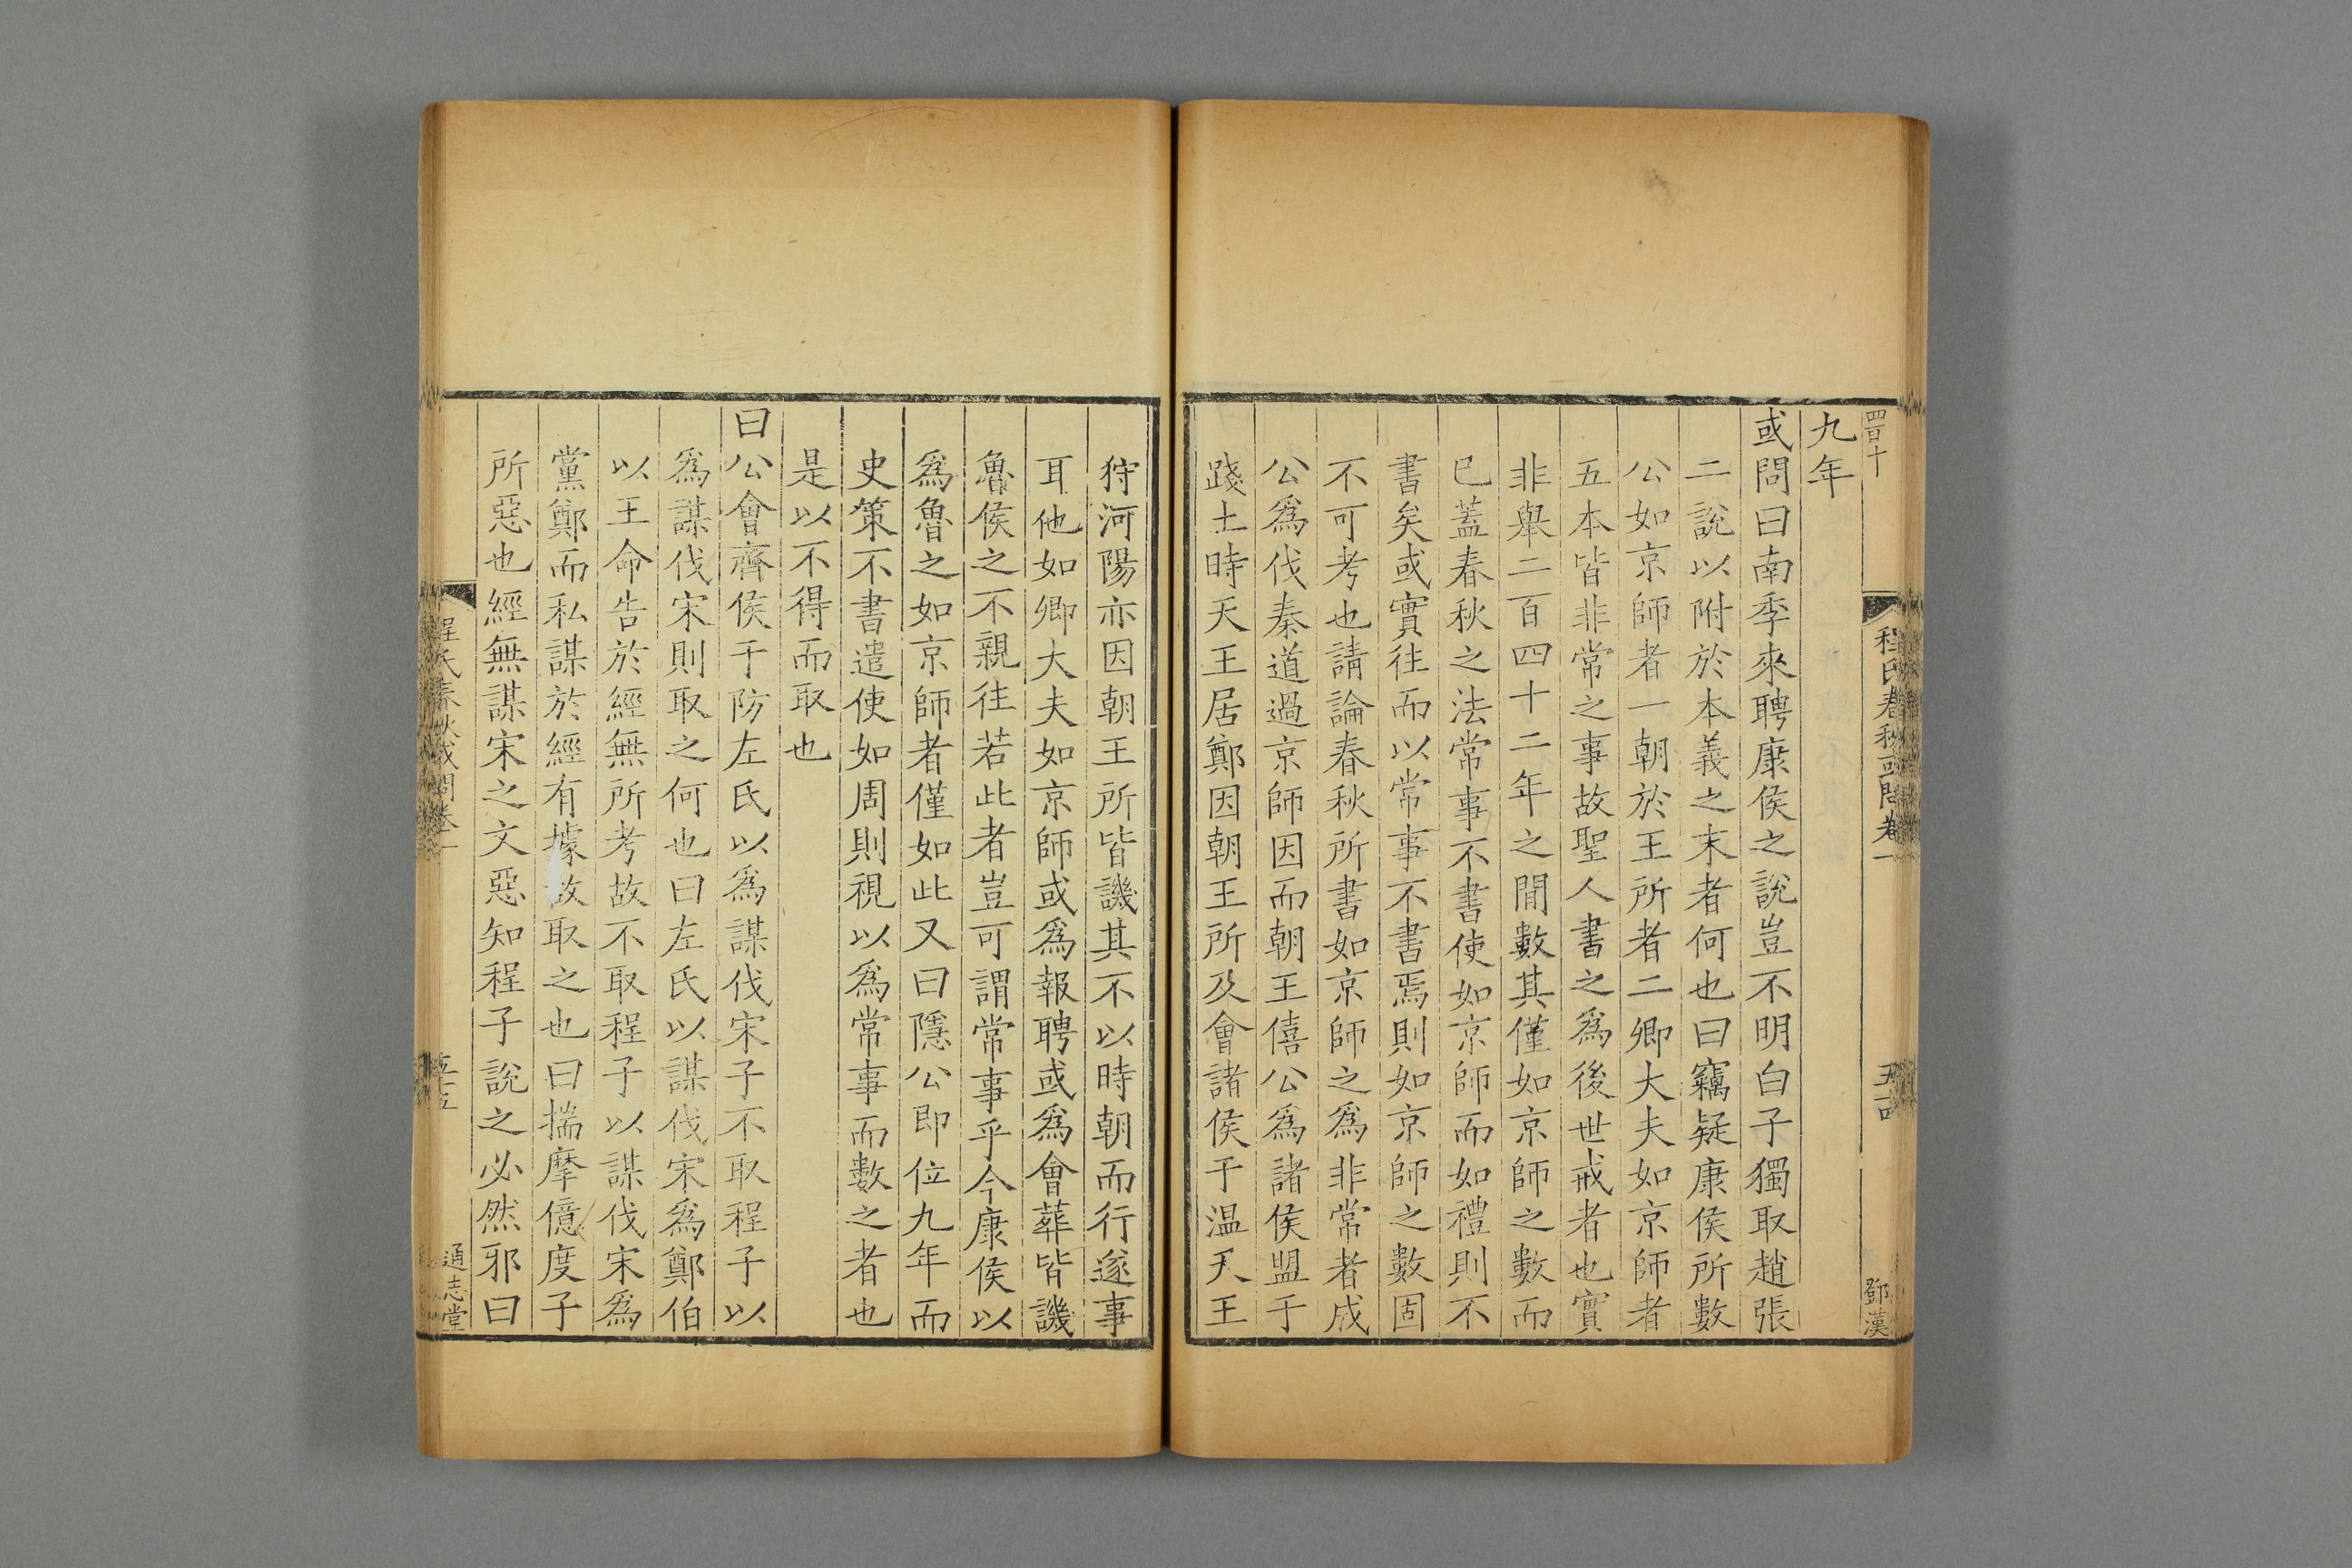 四百十
程氏春秋或問卷一
五十四
鄧漢
九年
或問曰南季來聘康侯之說豈不明白子獨取趙張
二說以附於本義之末者何也曰竊疑康侯所數
公如京師者一朝於王所者二卿大夫如京師者
五本皆非常之事故聖人書之為後世戒者也實
非舉二百四十二年之間數其僅如京師之數而
已蓋春秋之法常事不書使如京師而如禮則不
書矣或實往而以常事不書焉則如京師之數固
不可考也請論春秋所書如京師之為非常者成
公為伐秦道過京師因而朝王僖公為諸侯盟于
踐土時天王居鄭因朝王所及會諸侯于温天王
狩河陽亦因朝王所皆譏其不以時朝而行遂事
耳他如卿大夫如京師或為報聘或為會葬皆譏
魯侯之不親往若此者豈可謂常事乎今康侯以
為魯之如京師者僅如此又曰隱公即位九年而
史策不書遣使如周則視以為常事而數之者也
是以不得而取也
曰公會齊侯于防左氏以為謀伐宋子不取程子以
為謀伐宋則取之何也曰左氏以謀伐宋為鄭伯
以王命告於經無所考故不取程子以謀伐宋為
黨鄭而私謀於經有據故取之也曰揣摩億度子
所惡也經無謀宋之文惡知程子說之必然邪曰
程氏春秋或問卷一
五十五
通志堂